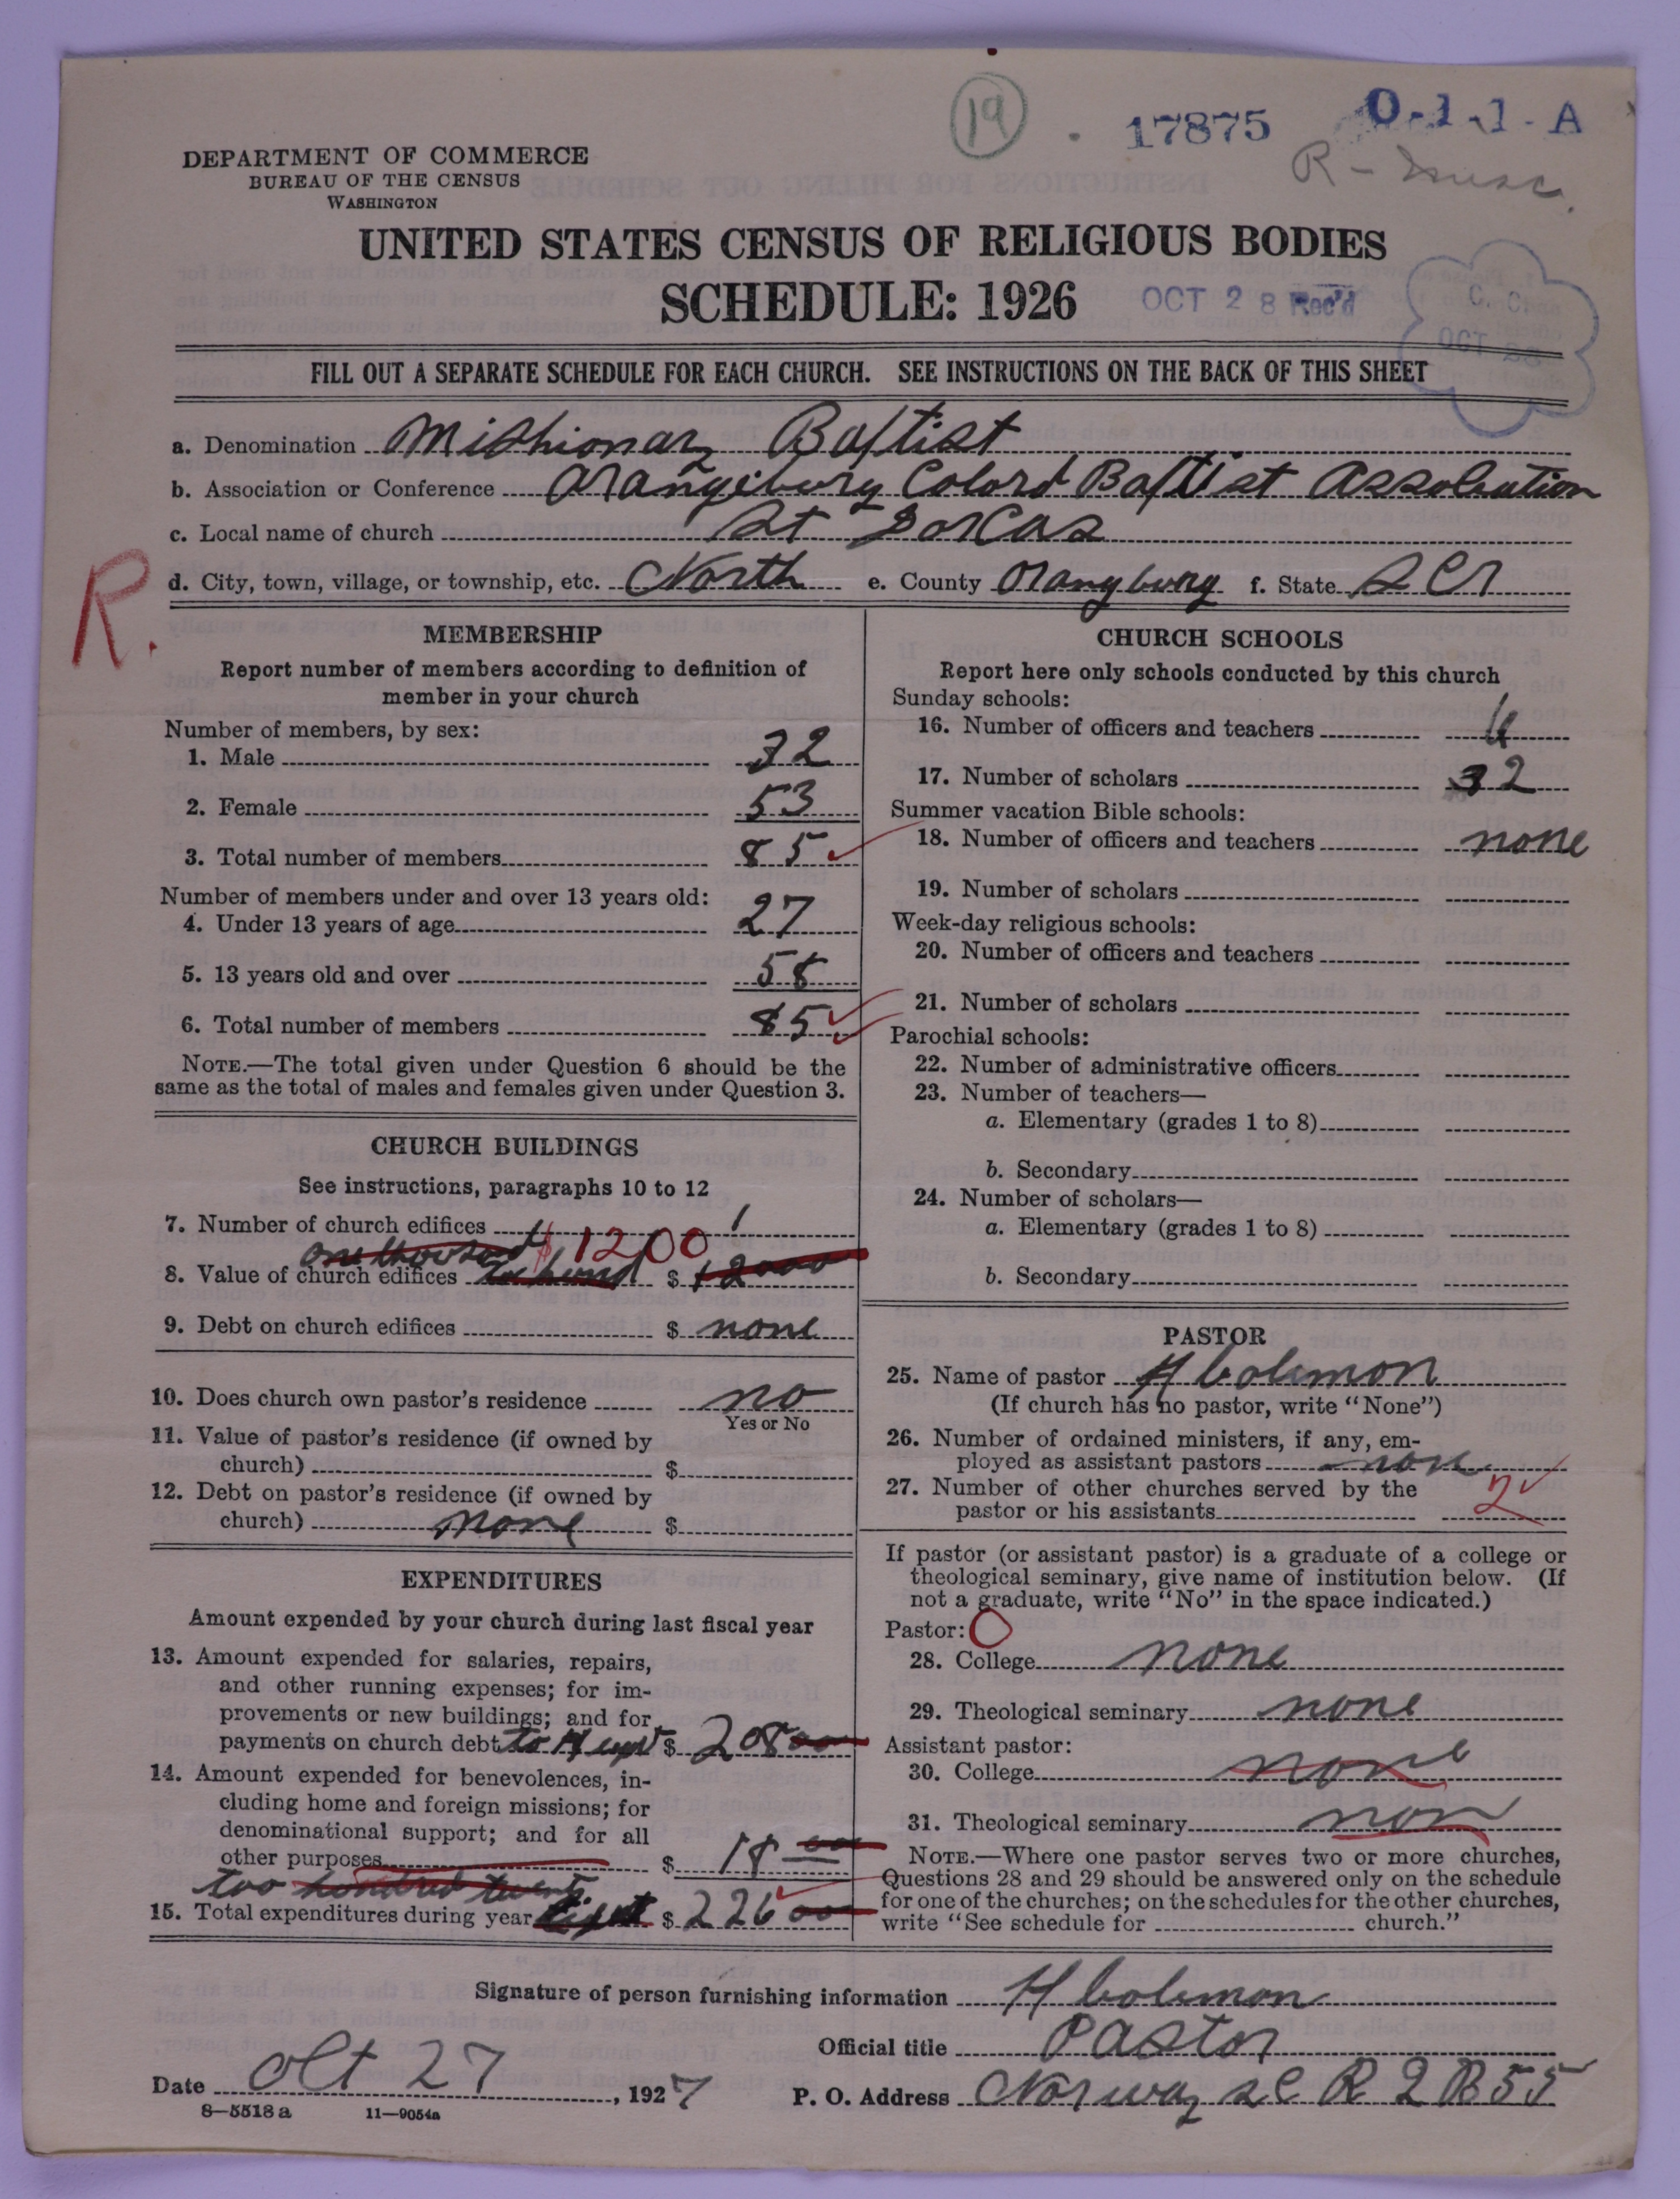 19 . 17875 0-1-1-A
DEPARTMENT OF COMMERCE
BUREAU OF THE CENSUS
WASHINGTON
R-Musc.
UNITED STATES CENSUS OF RELIGIOUS BODIES
SCHEDULE: 1926
OCT 28 Rec'd
C. C.
OCT 28
FILL OUT A SEPARATE SCHEDULE FOR EACH CHURCH. SEE INSTRUCTIONS ON THE BACK OF THIS SHEET
a. Denomination Mishionary Baptist
b. Association or Conference Orangeburg Colord Baptist Assolcution
c. Local name of church St Dorcas
R.
d. City, town, village, or township, etc. North e. County Orangburg f. State SC
MEMBERSHIP
Report number of members according to definition of
member in your church
Number of members, by sex:
1. Male 32
2. Female 53
3. Total number of members 85
Number of members under and over 13 years old:
4. Under 13 years of age 27
5. 13 years old and over 58
6. Total number of members 85
NOTE.—The total given under Question 6 should be the
same as the total of males and females given under Question 3.
CHURCH BUILDINGS
See instructions, paragraphs 10 to 12
7. Number of church edifices 1
one thousand $1200
8. Value of church edifices $ 12000
9. Debt on church edifices $ none
10. Does church own pastor's residence no
Yes or No
11. Value of pastor's residence (if owned by
church) $
12. Debt on pastor's residence (if owned by
church) none $
EXPENDITURES
Amount expended by your church during last fiscal year
13. Amount expended for salaries, repairs,
and other running expenses; for im-
provements or new buildings; and for
payments on church debt $ 208 00
14. Amount expended for benevolences, in-
cluding home and foreign missions; for
denominational support; and for all
other purposes $ 18 00
too hundred twenty
15. Total expenditures during year $ 226 00
CHURCH SCHOOLS
Report here only schools conducted by this church
Sunday schools:
16. Number of officers and teachers
17. Number of scholars 32
Summer vacation Bible schools:
18. Number of officers and teachers none
19. Number of scholars
Week-day religious schools:
20. Number of officers and teachers
21. Number of scholars
Parochial schools:
22. Number of administrative officers
23. Number of teachers—
a. Elementary (grades 1 to 8)
b. Secondary
24. Number of scholars—
a. Elementary (grades 1 to 8)
b. Secondary
PASTOR
25. Name of pastor H Colemon
(If church has no pastor, write "None")
26. Number of ordained ministers, if any, em-
ployed as assistant pastors non
27. Number of other churches served by the
pastor or his assistants 2
If pastor (or assistant pastor) is a graduate of a college or
theological seminary, give name of institution below. (If
not a graduate, write "No" in the space indicated.)
Pastor: O
28. College none
29. Theological seminary none
Assistant pastor:
30. College none
31. Theological seminary non
NOTE.—Where one pastor serves two or more churches,
Questions 28 and 29 should be answered only on the schedule
for one of the churches; on the schedules for the other churches,
write "See schedule for church."
Signature of person furnishing information H Colemon
Official title Pastor
Date Oct 27, 1927 P. O. Address Norway SC R 2 B 55
8-5518a 11-9054a